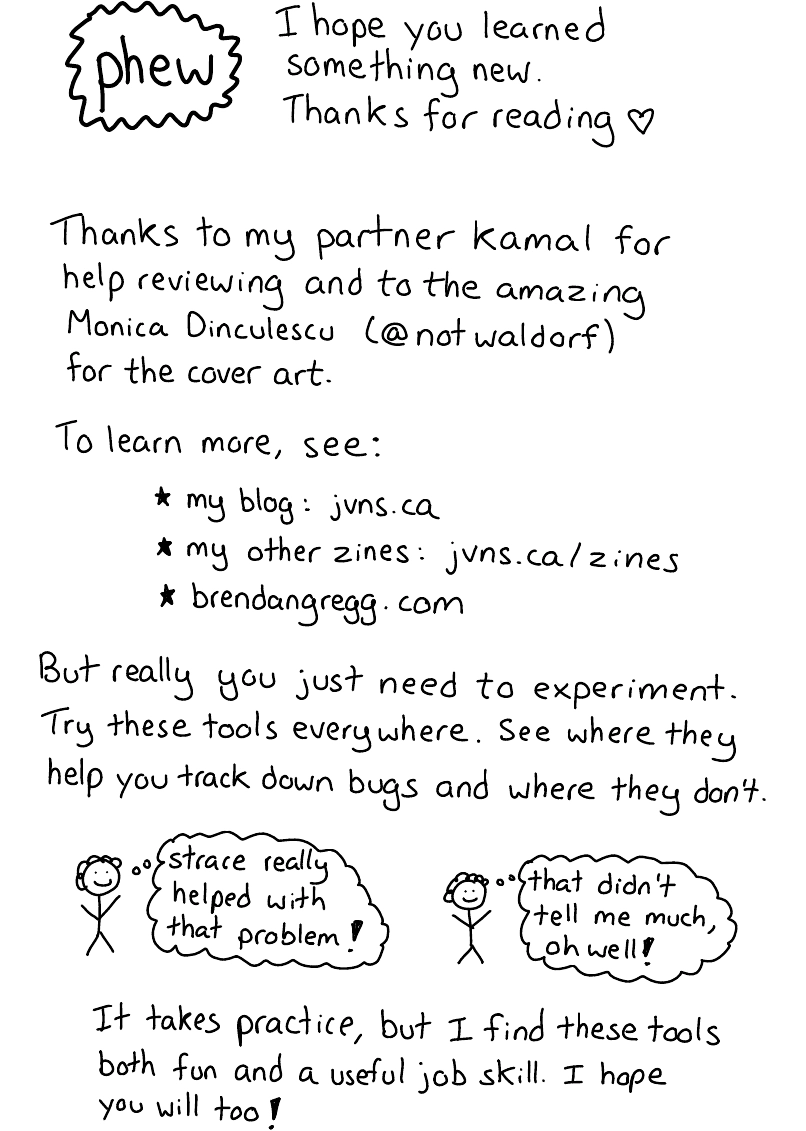 phew
I hope you learned
something new.
Thanks for reading ♡
Thanks to my partner Kamal for
help reviewing and to the amazing
Monica Dinculescu (@notwaldorf)
for the cover art.
To learn more, see:
★ my blog: jvns.ca
★ my other zines: jvns.ca/zines
★ brendangregg.com
But really you just need to experiment.
Try these tools everywhere. See where they
help you track down bugs and where they don't.
strace really
helped with
that problem!
that didn't
tell me much,
oh well!
It takes practice, but I find these tools
both fun and a useful job skill. I hope
you will too!